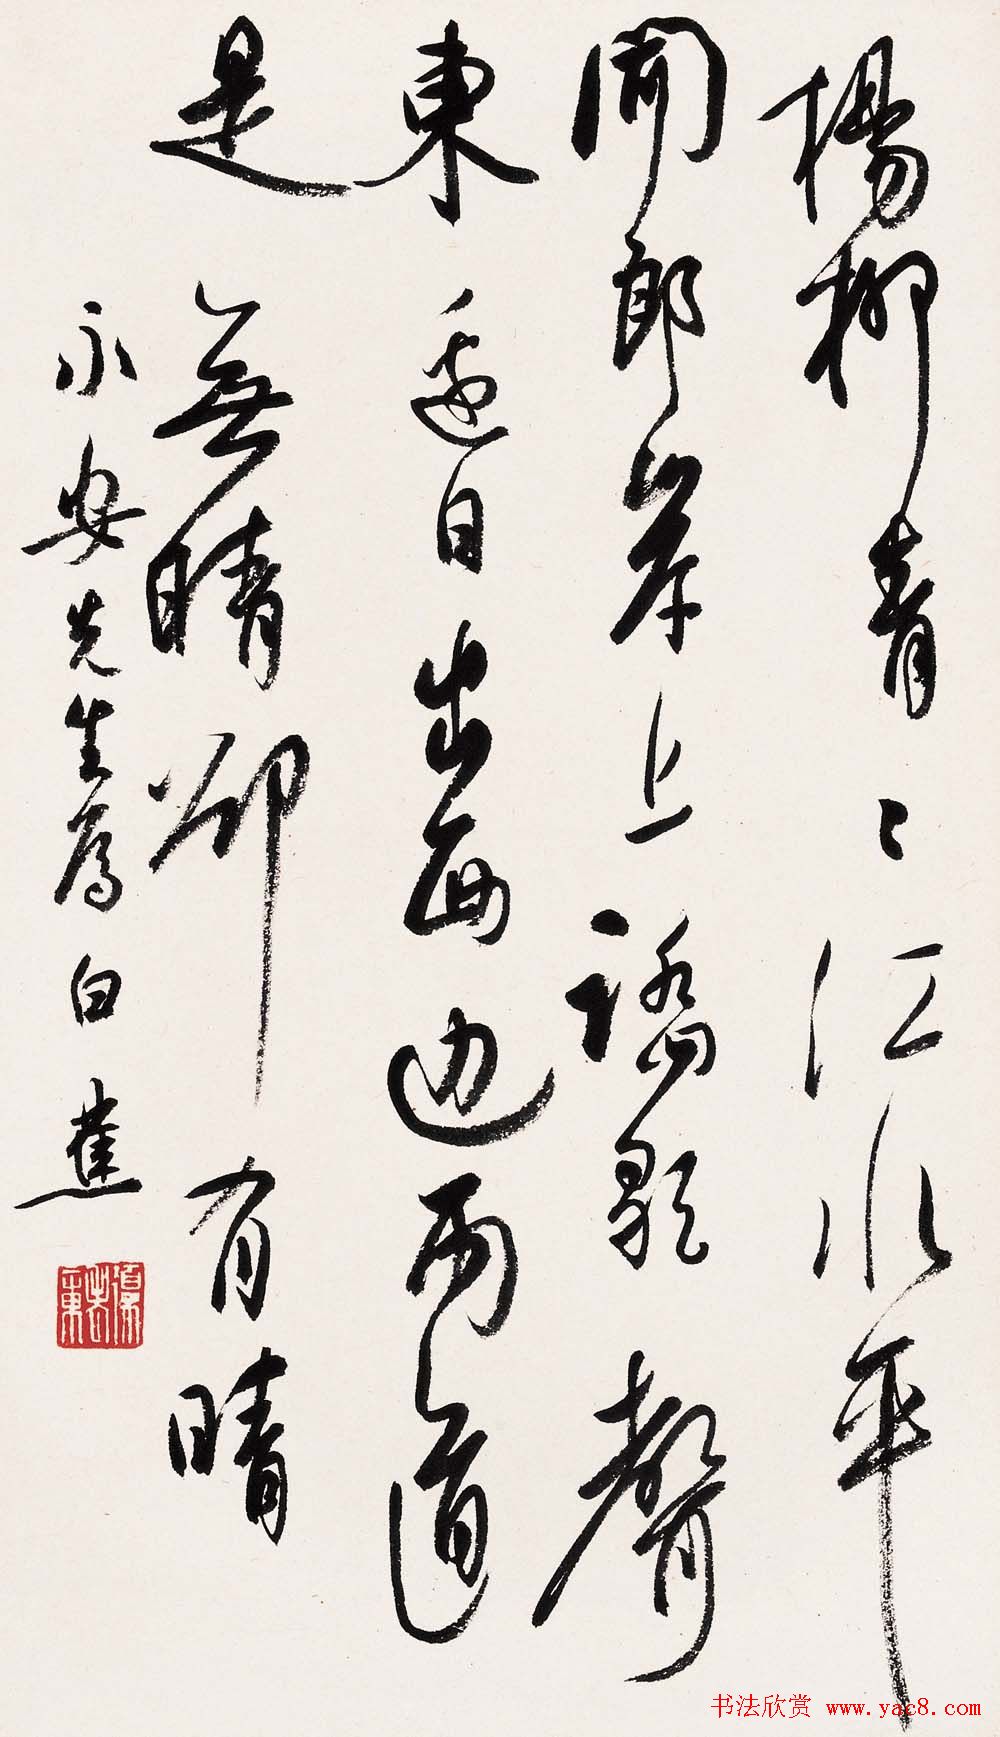 楊柳青〻江水平
聞郎岸上踏歌聲
東邊日出西边雨道
是無晴卻有晴
永安先生屬 白蕉
书法欣赏 www.yac8.com